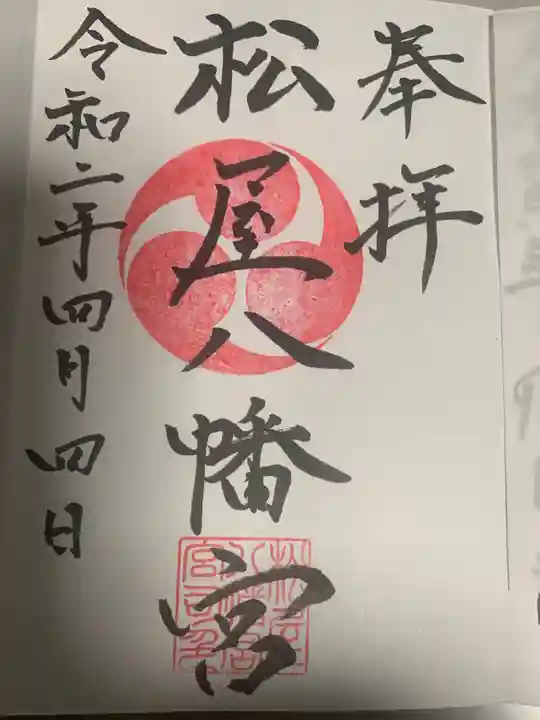 奉拝
松屋八幡宮
令和二年四月四日